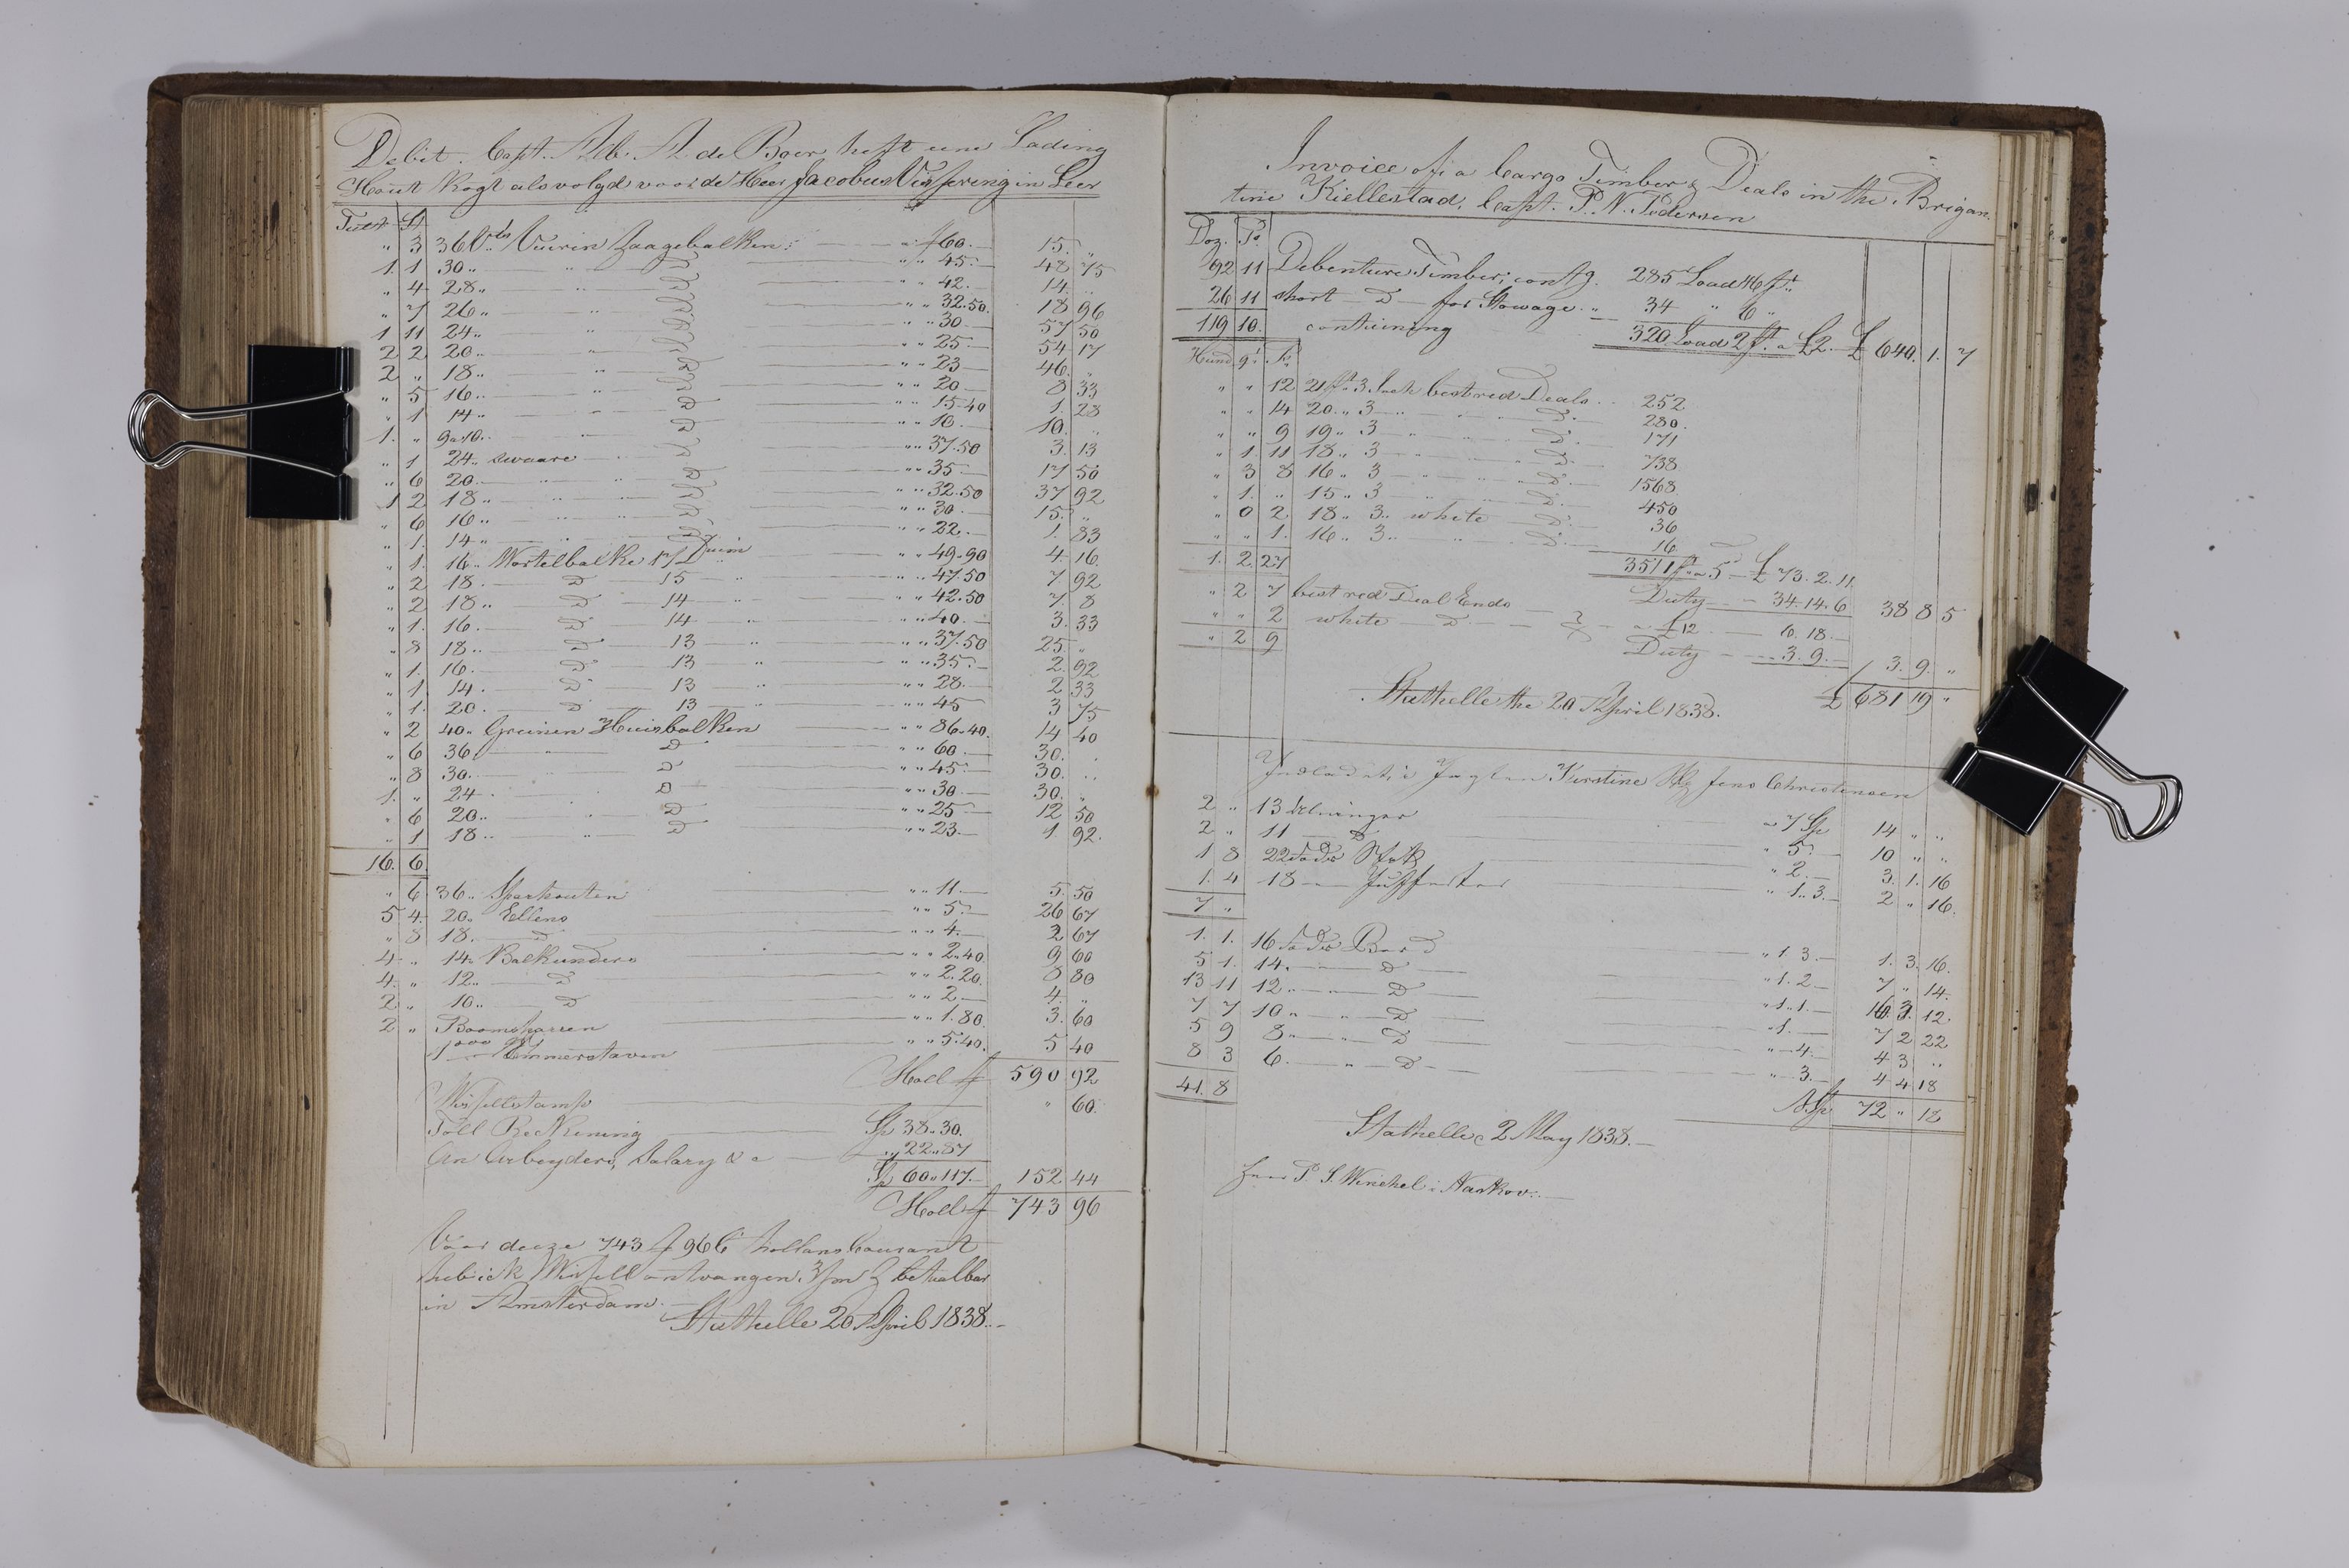 Debit. Capt. Alb. A. de Boer heft eene Lading
Hout kogt als volgd voor de Heer Jacobus Vissering in Leer
Tult St
" 3 36 Vts Vuirin Zaagebalken " f 60.— 15. "
1. 1 30 " " D " " 45.— 48 75
" 4 28 " " D " " 42.— 14. "
" 7 26 " " D " " 32.50. 18 96
1 11 24 " " D " " 30 — 57 50
2 2 20 " " D " " 25 — 54 17
2 " 18 " " D " " 23 — 46. "
" 5 16 " " D " " 20 — 8 33
" 1 14 " " D " " 15.40 1. 28
1. " 9 a 10 " " D " " 10.— 10. "
" 1 24 " swaare D " " 37.50 3. 13
" 6 20 " " D " " 35 — 17 50
1 2 18 " " D " " 32.50 37 92
" 6 16 " " D " " 30 — 15. "
" 1. 14 " " D " " 22.— 1. 83
" 1. 16 " Wortelbalke 17 Duim " " 49.90 4 16.
" 2 18. D 15 " " " 47.50 7. 92
" 2 18 " D 14 " " " 42.50 7. 8
" 1. 16. D 14 " " " 40.— 3. 33
" 8 18 " D 13 " " " 37.50 25. "
" 1. 16. D 13 " " " 35.— 2 92
" 1. 14. D 13 " " " 28.— 2 33
" 1. 20. D 13 " " " 45 3 75
" 2 40 " Greinen Huisbalken " " 86.40. 14 40
" 6 36. D " " 60.— 30. "
" 8 30. D " " 45.— 30. "
1. " 24. D " " 30 — 30. "
" 6 20 " D " " 25 — 12 50
" 1 18 " D " " 23.— 1 92.
16. 6
" 6 36 " Sparhouten " " 11.— 5 50
5 4 20 " Ellens " " 5.— 26 67
" 8 18. D " " 4.— 2 67
4 " 14 " Balkunders " " 2.40. 9 60
4. " 12 " D " " 2.20. 8 80
2 " 10 " D " " 2 — 4. "
2 " Boomsparren " " 1.80. 3. 60
1000 Emmerstaven " " 5.40. 5 40
Holl f 590 92
Wisselstamp " 60.
Toll Reckening Sp 38.30.
An Arbeyders, Salary &c " 22.87
Sp 60.117.— 152 44
Holl f 743 96
Voor deeze 743 f 96 C hollans Courant
heb ick Wissell ontvangen, betaalbar
in Amsterdam.
Stathelle 20 April 1838.—
Invoice of a Cargo Timber & Deals in the Brigan-
tine Kiellestad, Capt. P. N. Pedersen
Doz. Ps
92 11 Debenture Timber, contg. 285 Load 46 ft.
26 11 short D for Stowage " 34 " 6 "
119 10. containing 320 Load 2 ft. a £2. £ 640. 1. 7
Hund qr. Ps
" " 12 21 ft 3 Inch best red Deals 252
" " 14 20 " 3 " D 280.
" " 9 19 " 3 " D 171
" 1. 11 18 " 3 " D 738
" 3 8 16 " 3 " D 1568
" 1. " 15 " 3 " D 450
" 0 2. 18 " 3 " white D 36
" " 1. 16 " 3 " " D 16
1. 2 27 3511 ft a 5 £ 73. 2. 11
Duty — 34. 14. 6 38 8 5
" 2 7 best red Deal Ends
" " 2 white D a £12 6. 18.—
" 2 9 Duty — 3. 9.— 3. 9. "
Stathelle the 20 April 1838. £ 681 19 "
Indladet i Jagten Kirstine Jens Christensen
2 " 13 Alninger a 7 Sp 14 " "
2 " 11 D " 5.— 10 " "
1 8 22 Fods Stok " 2.— 3. 1. 16
1. 4 18 " Jufferter " 1. 3.— 2 " 16.
7 "
1. 1. 16 Fods Bord " 1. 3.— 1. 3. 16.
5 1. 14. D " 1. 2 — 7 " 14.
13 11 12 " D " 1. 1.— 16. 3. 12
7 7 10 " D " 1.— 7 2 22
5 9 8 " D " 4.— 4 3 "
8 3 6. D " 3.— 4 4 18
41. 8 Sp 72 " 18
Stathelle 2 May 1838.—
P. S. Winchel i Naskov.—